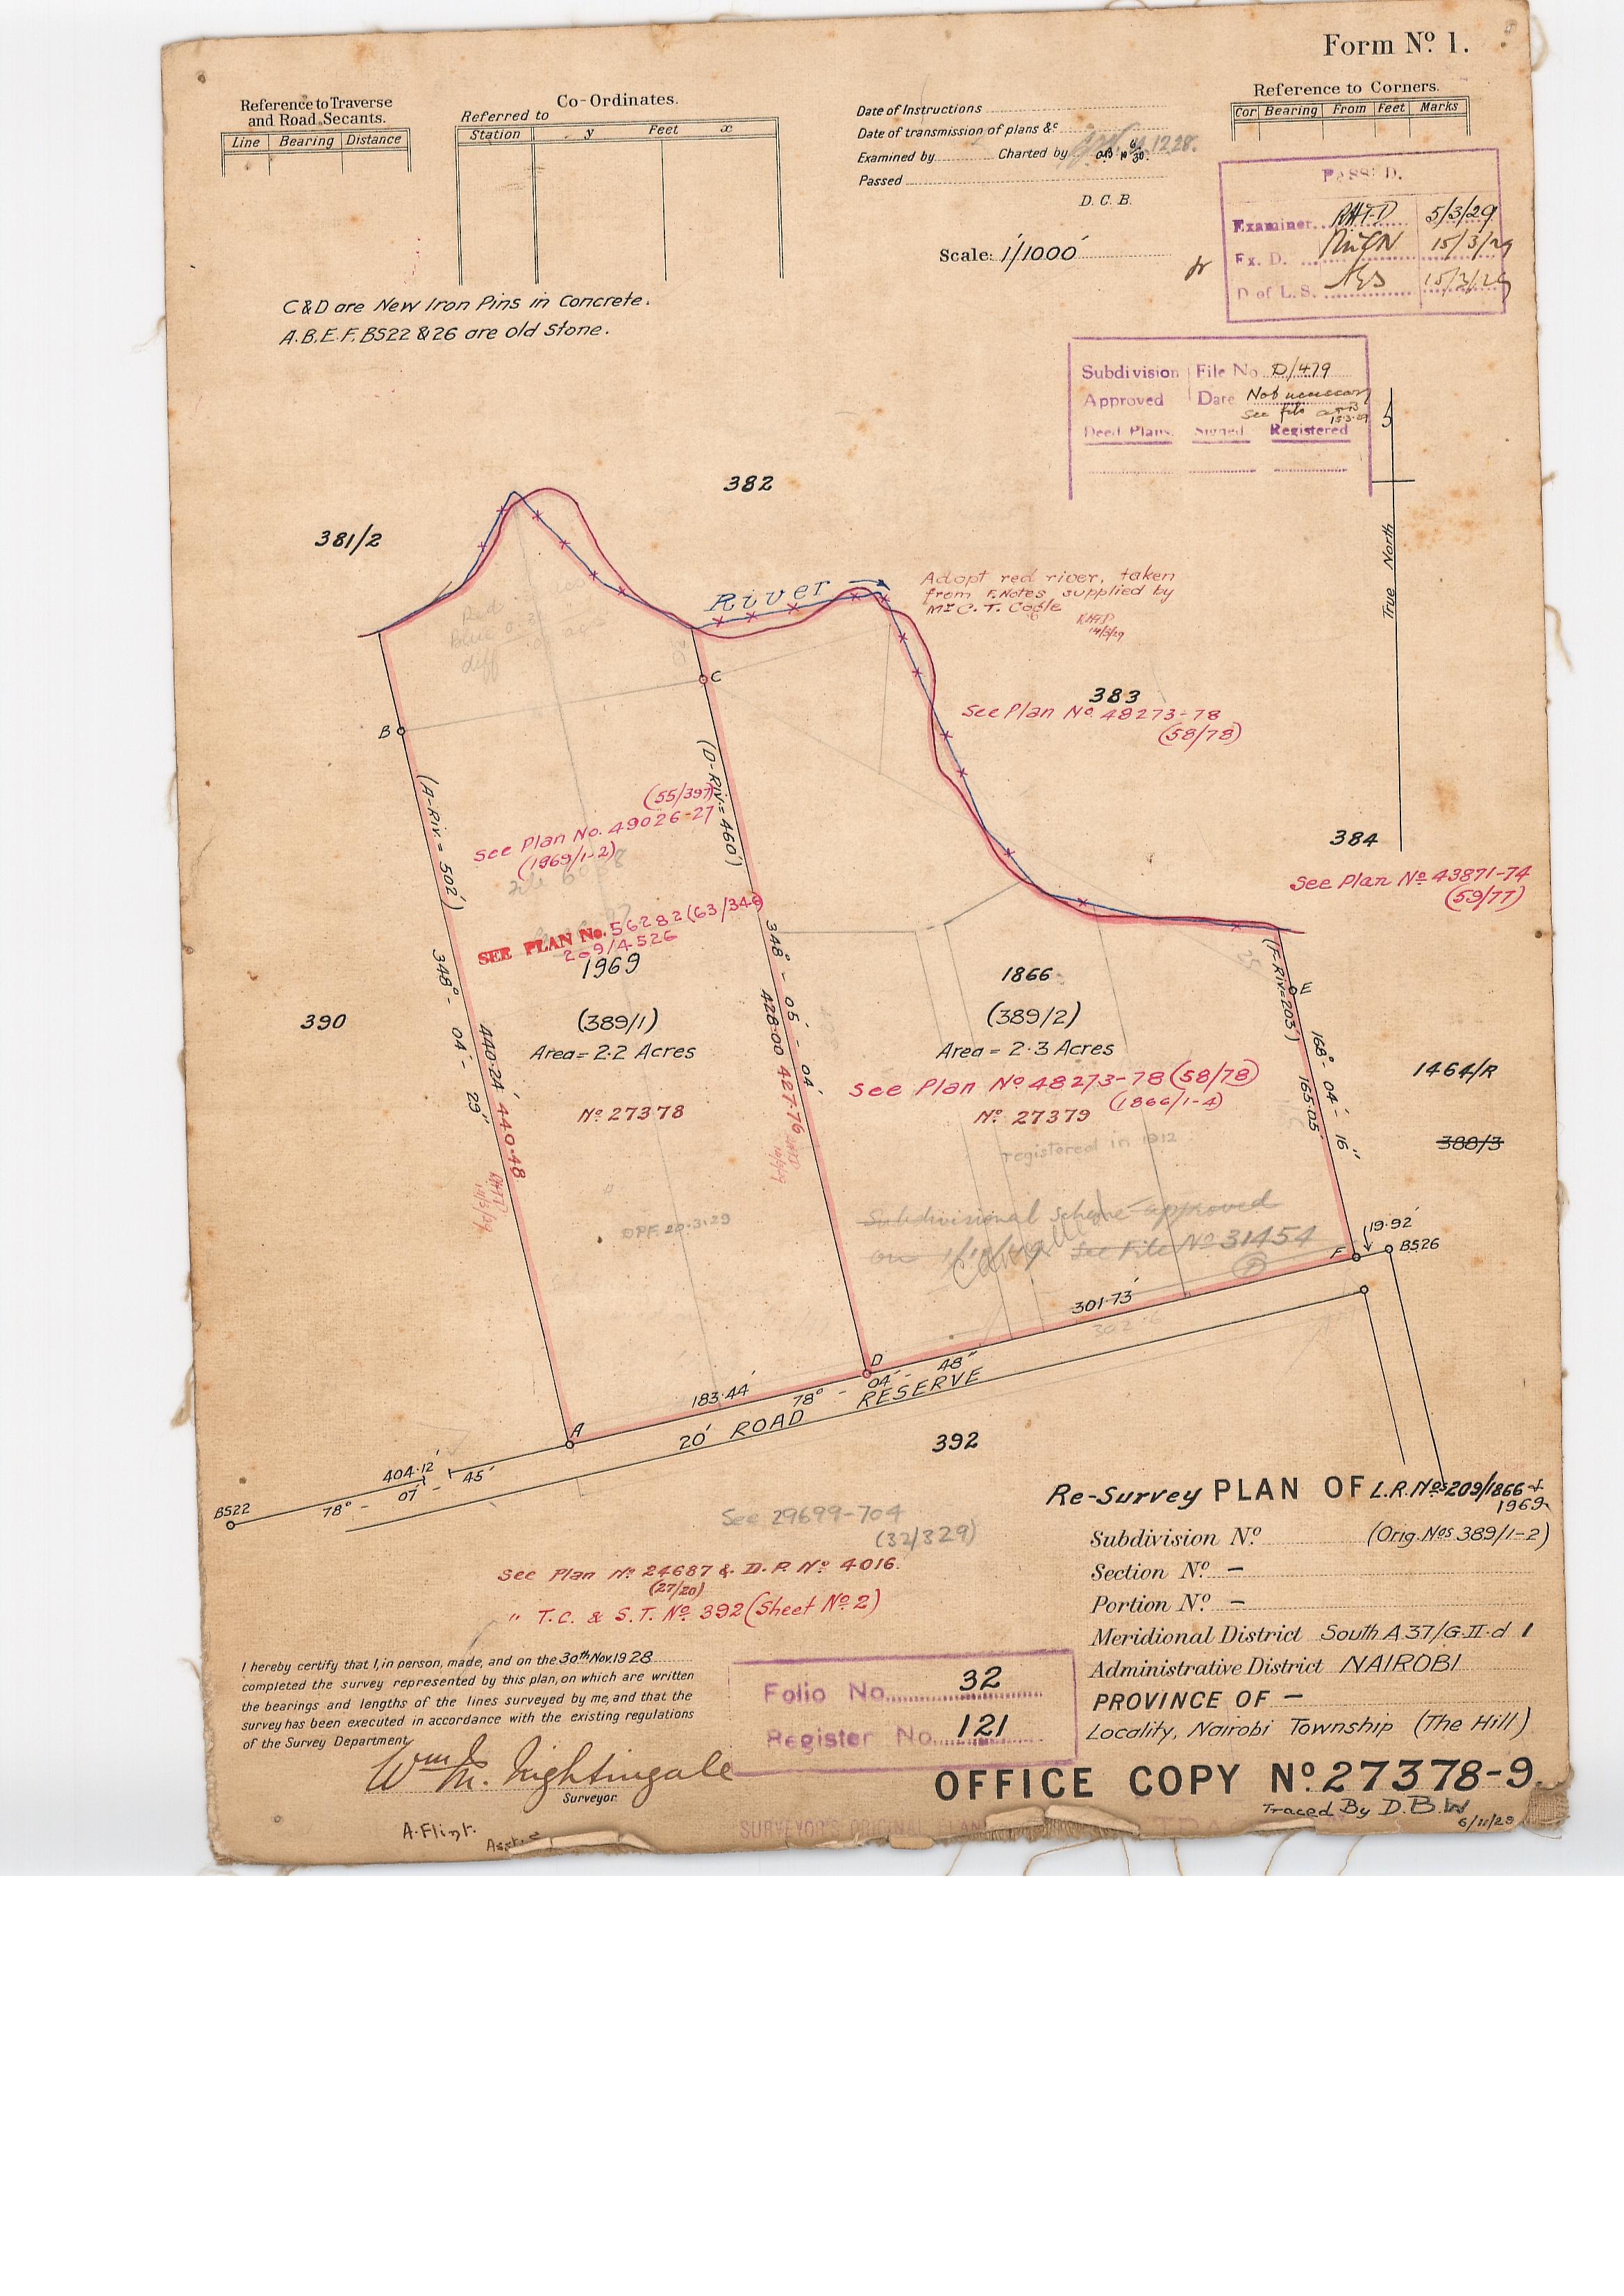 Form Nº 1.
Reference to Traverse
and Road Secants.
Line Bearing Distance
Co-Ordinates.
Referred to
Station y Feet x
Date of Instructions
Date of transmission of plans &c
Examined by Charted by
Passed
D. C. B.
Scale: 1/1000
Reference to Corners.
Cor Bearing From Feet Marks
PASSED.
Examiner 5/3/29
Ex. D. 15/3/29
D of L. S. 15/3/29
C & D are New Iron Pins in Concrete.
A.B.E.F. BS22 & 26 are old Stone.
Subdivision File No D/479
Approved Date Not necessary
See file
15.3.29
Deed Plans. Signed Registered
True North
382
381/2
River
Adopt red river, taken
from F.Notes supplied by
Mr C. T. Cogle
14/3/29
Red
Blue
diff
B
C
383
See Plan Nº 48273-78
(58/78)
384
See Plan Nº 43871-74
(59/77)
(A-Riv = 502')
(D-Riv = 460')
(55/397)
See Plan No. 49026-27
(1969/1-2)
SEE PLAN No. 56282 (63/348)
209/4526
1969
(389/1)
Area = 2.2 Acres
Nº 27378
390
348° - 04' - 29"
440.24' 440.48
348° - 05' - 04"
428.00 427.76
1866
(389/2)
Area = 2.3 Acres
See Plan Nº 48273-78 (58/78)
(1866/1-4)
Nº 27379
registered in 1912
(F-Riv = 203')
E
168° - 04' - 16"
165.05'
1464/R
388/3
DPF. 20.3.29
Subdivisional scheme approved
See File Nº 31454
Cancelled
F
19.92'
BS26
301.73'
302.6
D
183.44'
78° - 04' - 48"
20' ROAD RESERVE
A
392
404.12'
78° - 07' - 45"
BS22
See 29699-704
(32/329)
See Plan Nº 24687 & D.P. Nº 4016.
(27/20)
" T.C. & S.T. Nº 392 (Sheet Nº 2)
Re-Survey PLAN OF L.R. Nos 209/1866 +
1969
Subdivision Nº (Orig. Nos 389/1-2)
Section Nº -
Portion Nº -
Meridional District South A 37/G.II.d 1
Administrative District NAIROBI
PROVINCE OF -
Locality, Nairobi Township (The Hill)
I hereby certify that I, in person, made, and on the 30th Nov. 1928
completed the survey represented by this plan, on which are written
the bearings and lengths of the lines surveyed by me, and that the
survey has been executed in accordance with the existing regulations
of the Survey Department.
Wm M. Nightingale
Surveyor.
A. Flint.
Folio No. 32
Register No. 121
OFFICE COPY Nº 27378-9.
Traced By D.B.W
SURVEYOR'S ORIGINAL PLAN